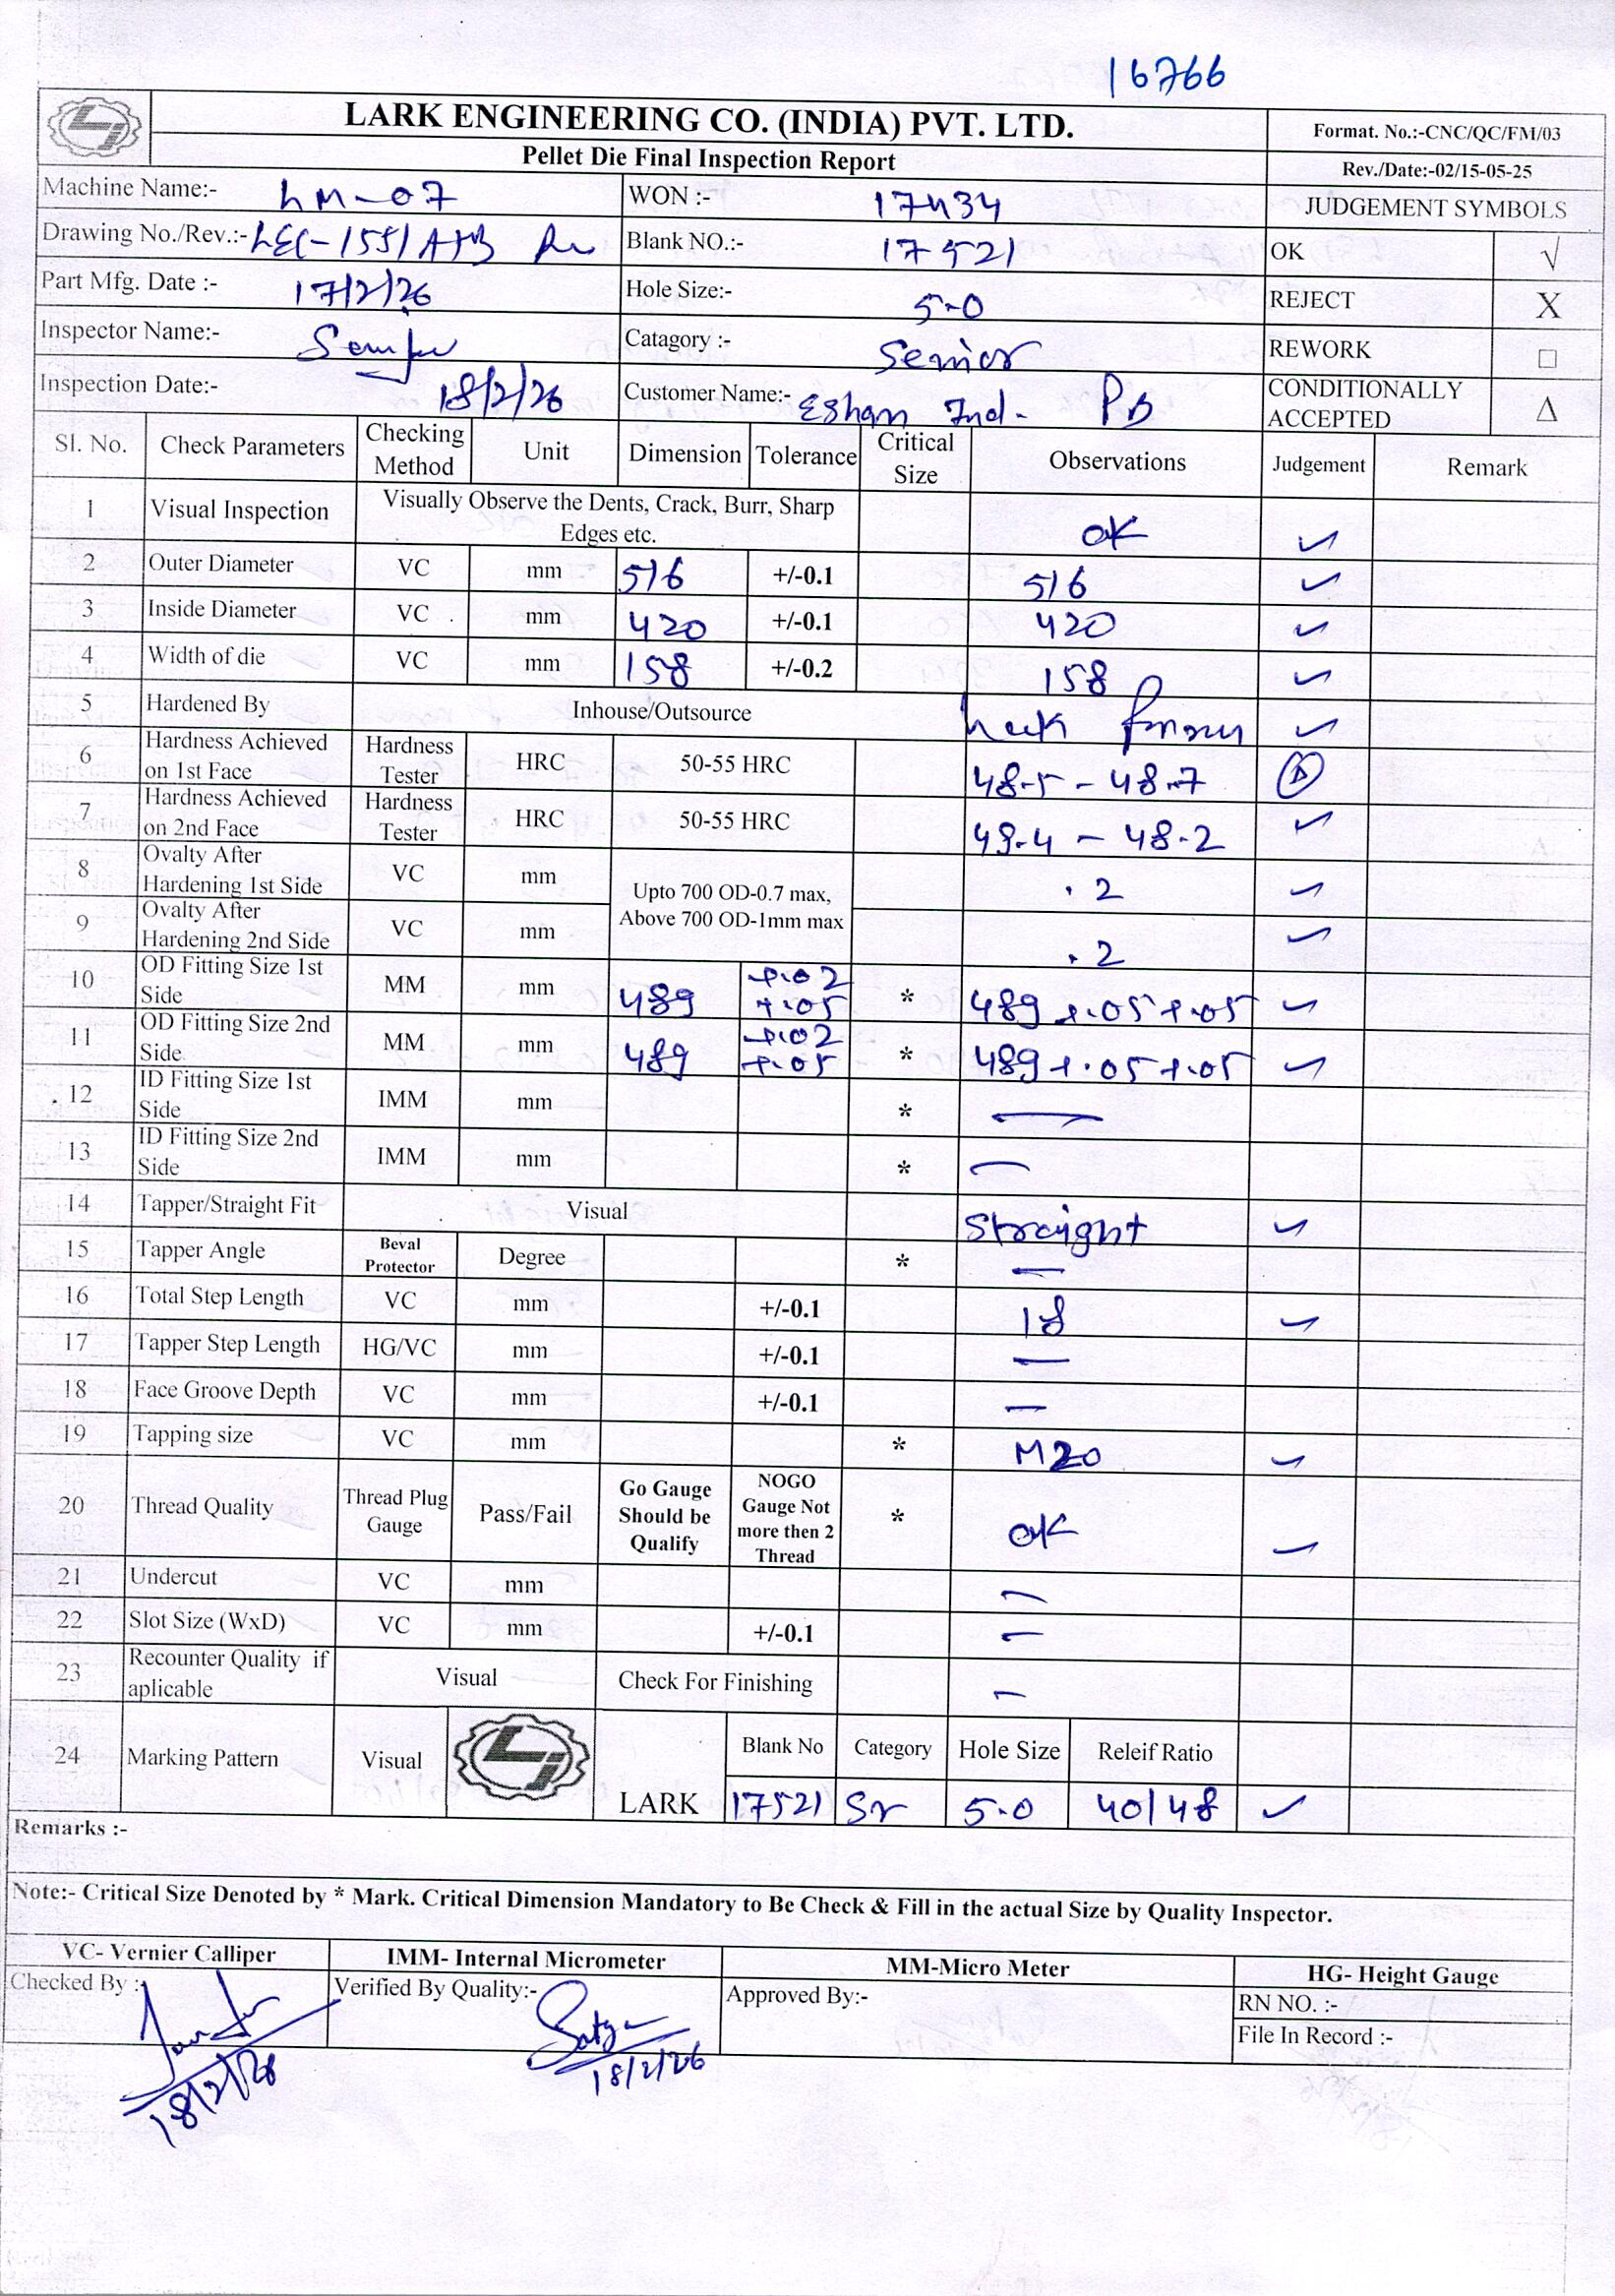 16766
LARK ENGINEERING CO. (INDIA) PVT. LTD.
Format. No.:-CNC/QC/FM/03
Pellet Die Final Inspection Report
Rev./Date:-02/15-05-25
Machine Name:- LM-07 WON :- 17434 JUDGEMENT SYMBOLS
Drawing No./Rev.:- LEC-155/A+B Blank NO.:- 17521 OK √
Part Mfg. Date :- 17/2/26 Hole Size:- 5.0 REJECT X
Inspector Name:- Catagory :- Senior REWORK □
Inspection Date:- 18/2/26 Customer Name:- Eshan Ind. PB CONDITIONALLY ACCEPTED Δ
Sl. No. Check Parameters Checking Method Unit Dimension Tolerance Critical Size Observations Judgement Remark
1 Visual Inspection Visually Observe the Dents, Crack, Burr, Sharp Edges etc. OK ✓
2 Outer Diameter VC mm 516 +/-0.1 516 ✓
3 Inside Diameter VC mm 420 +/-0.1 420 ✓
4 Width of die VC mm 158 +/-0.2 158 ✓
5 Hardened By Inhouse/Outsource ✓
6 Hardness Achieved on 1st Face Hardness Tester HRC 50-55 HRC 48.5 - 48.7 Δ
7 Hardness Achieved on 2nd Face Hardness Tester HRC 50-55 HRC 48.2 ✓
8 Ovalty After Hardening 1st Side VC mm Upto 700 OD-0.7 max, Above 700 OD-1mm max .2 ✓
9 Ovalty After Hardening 2nd Side VC mm .2 ✓
10 OD Fitting Size 1st Side MM mm 489 +.02 +.05 * 489 +.05 +.05 ✓
11 OD Fitting Size 2nd Side MM mm 489 +.02 +.05 * 489 +.05 +.05 ✓
12 ID Fitting Size 1st Side IMM mm * —
13 ID Fitting Size 2nd Side IMM mm * —
14 Tapper/Straight Fit Visual Straight ✓
15 Tapper Angle Beval Protector Degree * —
16 Total Step Length VC mm +/-0.1 18 ✓
17 Tapper Step Length HG/VC mm +/-0.1 —
18 Face Groove Depth VC mm +/-0.1 —
19 Tapping size VC mm * M20 ✓
20 Thread Quality Thread Plug Gauge Pass/Fail Go Gauge Should be Qualify NOGO Gauge Not more then 2 Thread * OK ✓
21 Undercut VC mm —
22 Slot Size (WxD) VC mm +/-0.1 —
23 Recounter Quality if aplicable Visual Check For Finishing —
24 Marking Pattern Visual LARK Blank No Category Hole Size Releif Ratio
17521 Sr 5.0 40/48 ✓
Remarks :-
Note:- Critical Size Denoted by * Mark. Critical Dimension Mandatory to Be Check & Fill in the actual Size by Quality Inspector.
VC- Vernier Calliper IMM- Internal Micrometer MM-Micro Meter HG- Height Gauge
Checked By :- Verified By Quality:- Approved By:- RN NO. :-
File In Record :-
18/2/26 18/2/26